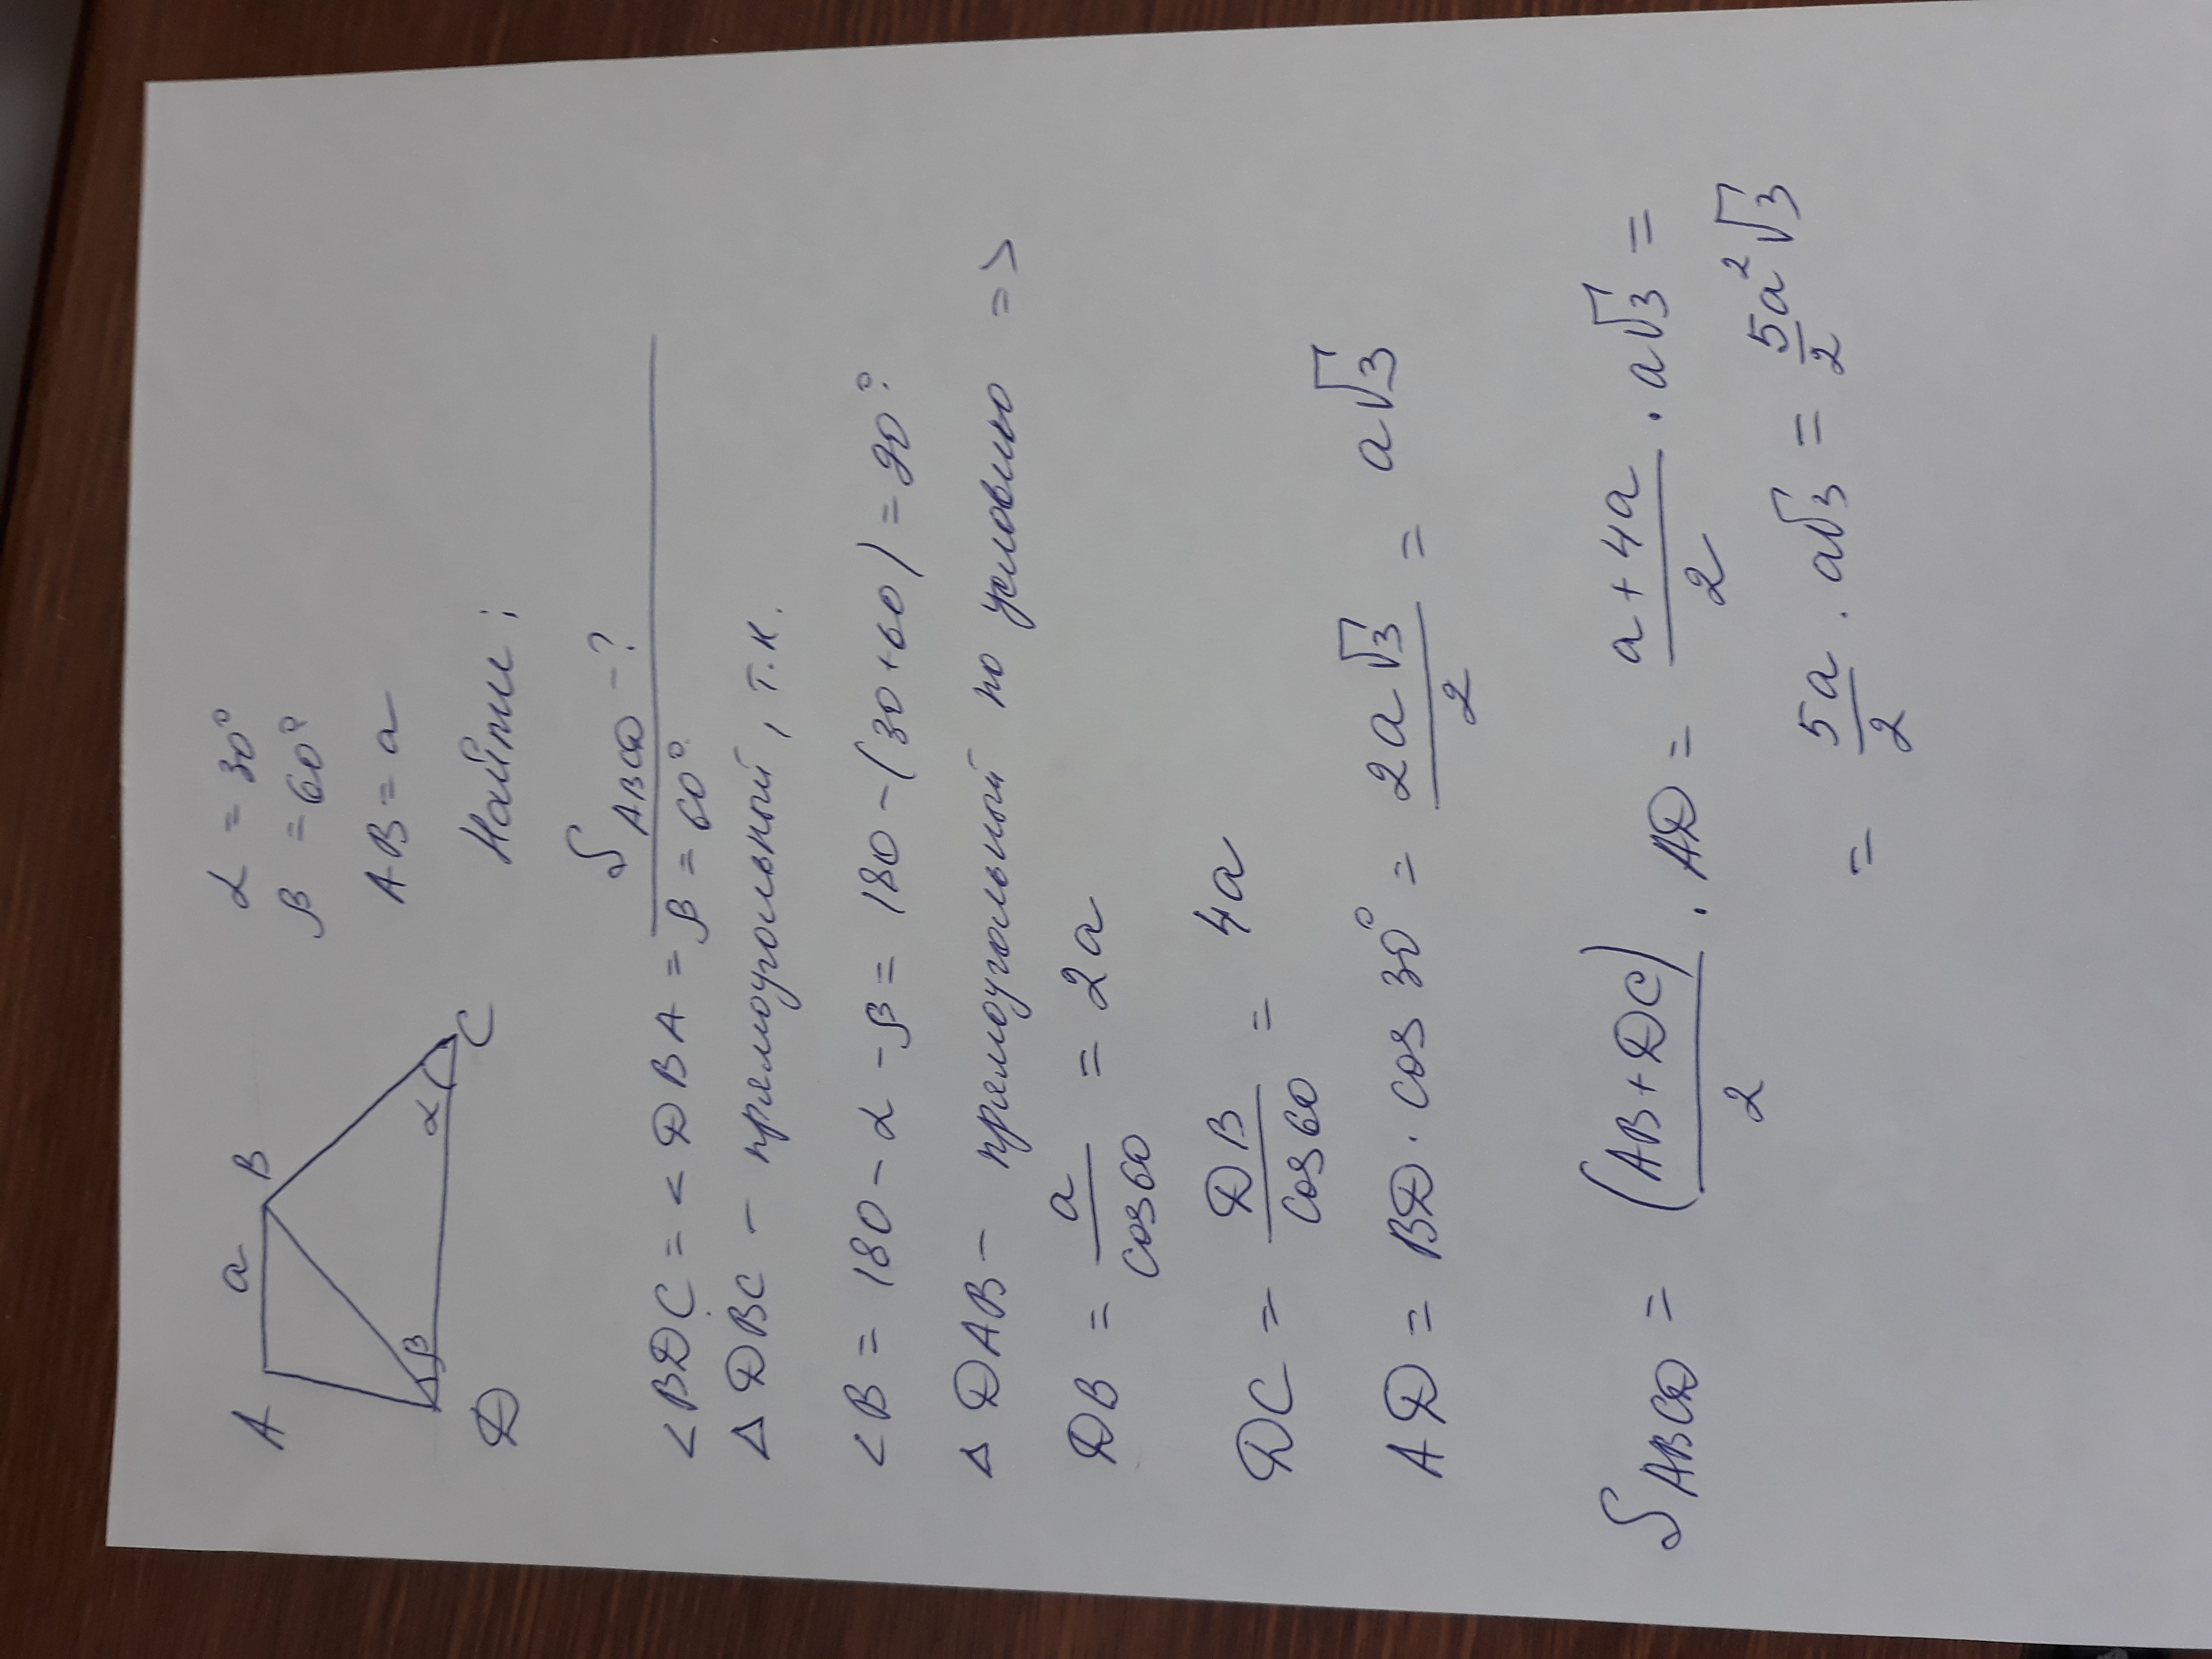 A a B
D β α C
α = 30°
β = 60°
AB = a
Найти:
S ABCD - ?
< BDC = < DBA = β = 60°.
Δ DBC - прямоугольный, т.к.
< B = 180 - α - β = 180 - (30 + 60) = 90°.
Δ DAB - прямоугольный по условию =>
DB = a / cos 60 = 2a
DC = DB / cos 60 = 4a
AD = BD · cos 30° = 2a√3 / 2 = a√3
S ABCD = (AB + DC) / 2 · AD = a + 4a / 2 · a√3 =
= 5a / 2 · a√3 = 5a²√3 / 2